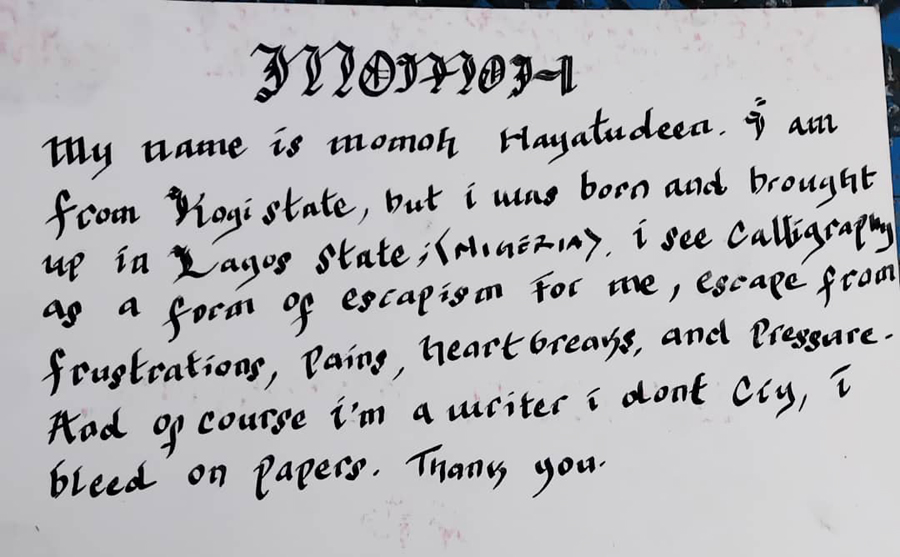 MOMOH
My name is momoh Hayatudeen. i am
from Kogi state, but i was born and brought
up in Lagos State;(NIGERIA). i see Calligraphy
as a form of escapism for me, escape from
frustrations, Pains, heartbreaks, and Pressure.
And of course i'm a writer i dont Cry, i
bleed on papers. Thank you.